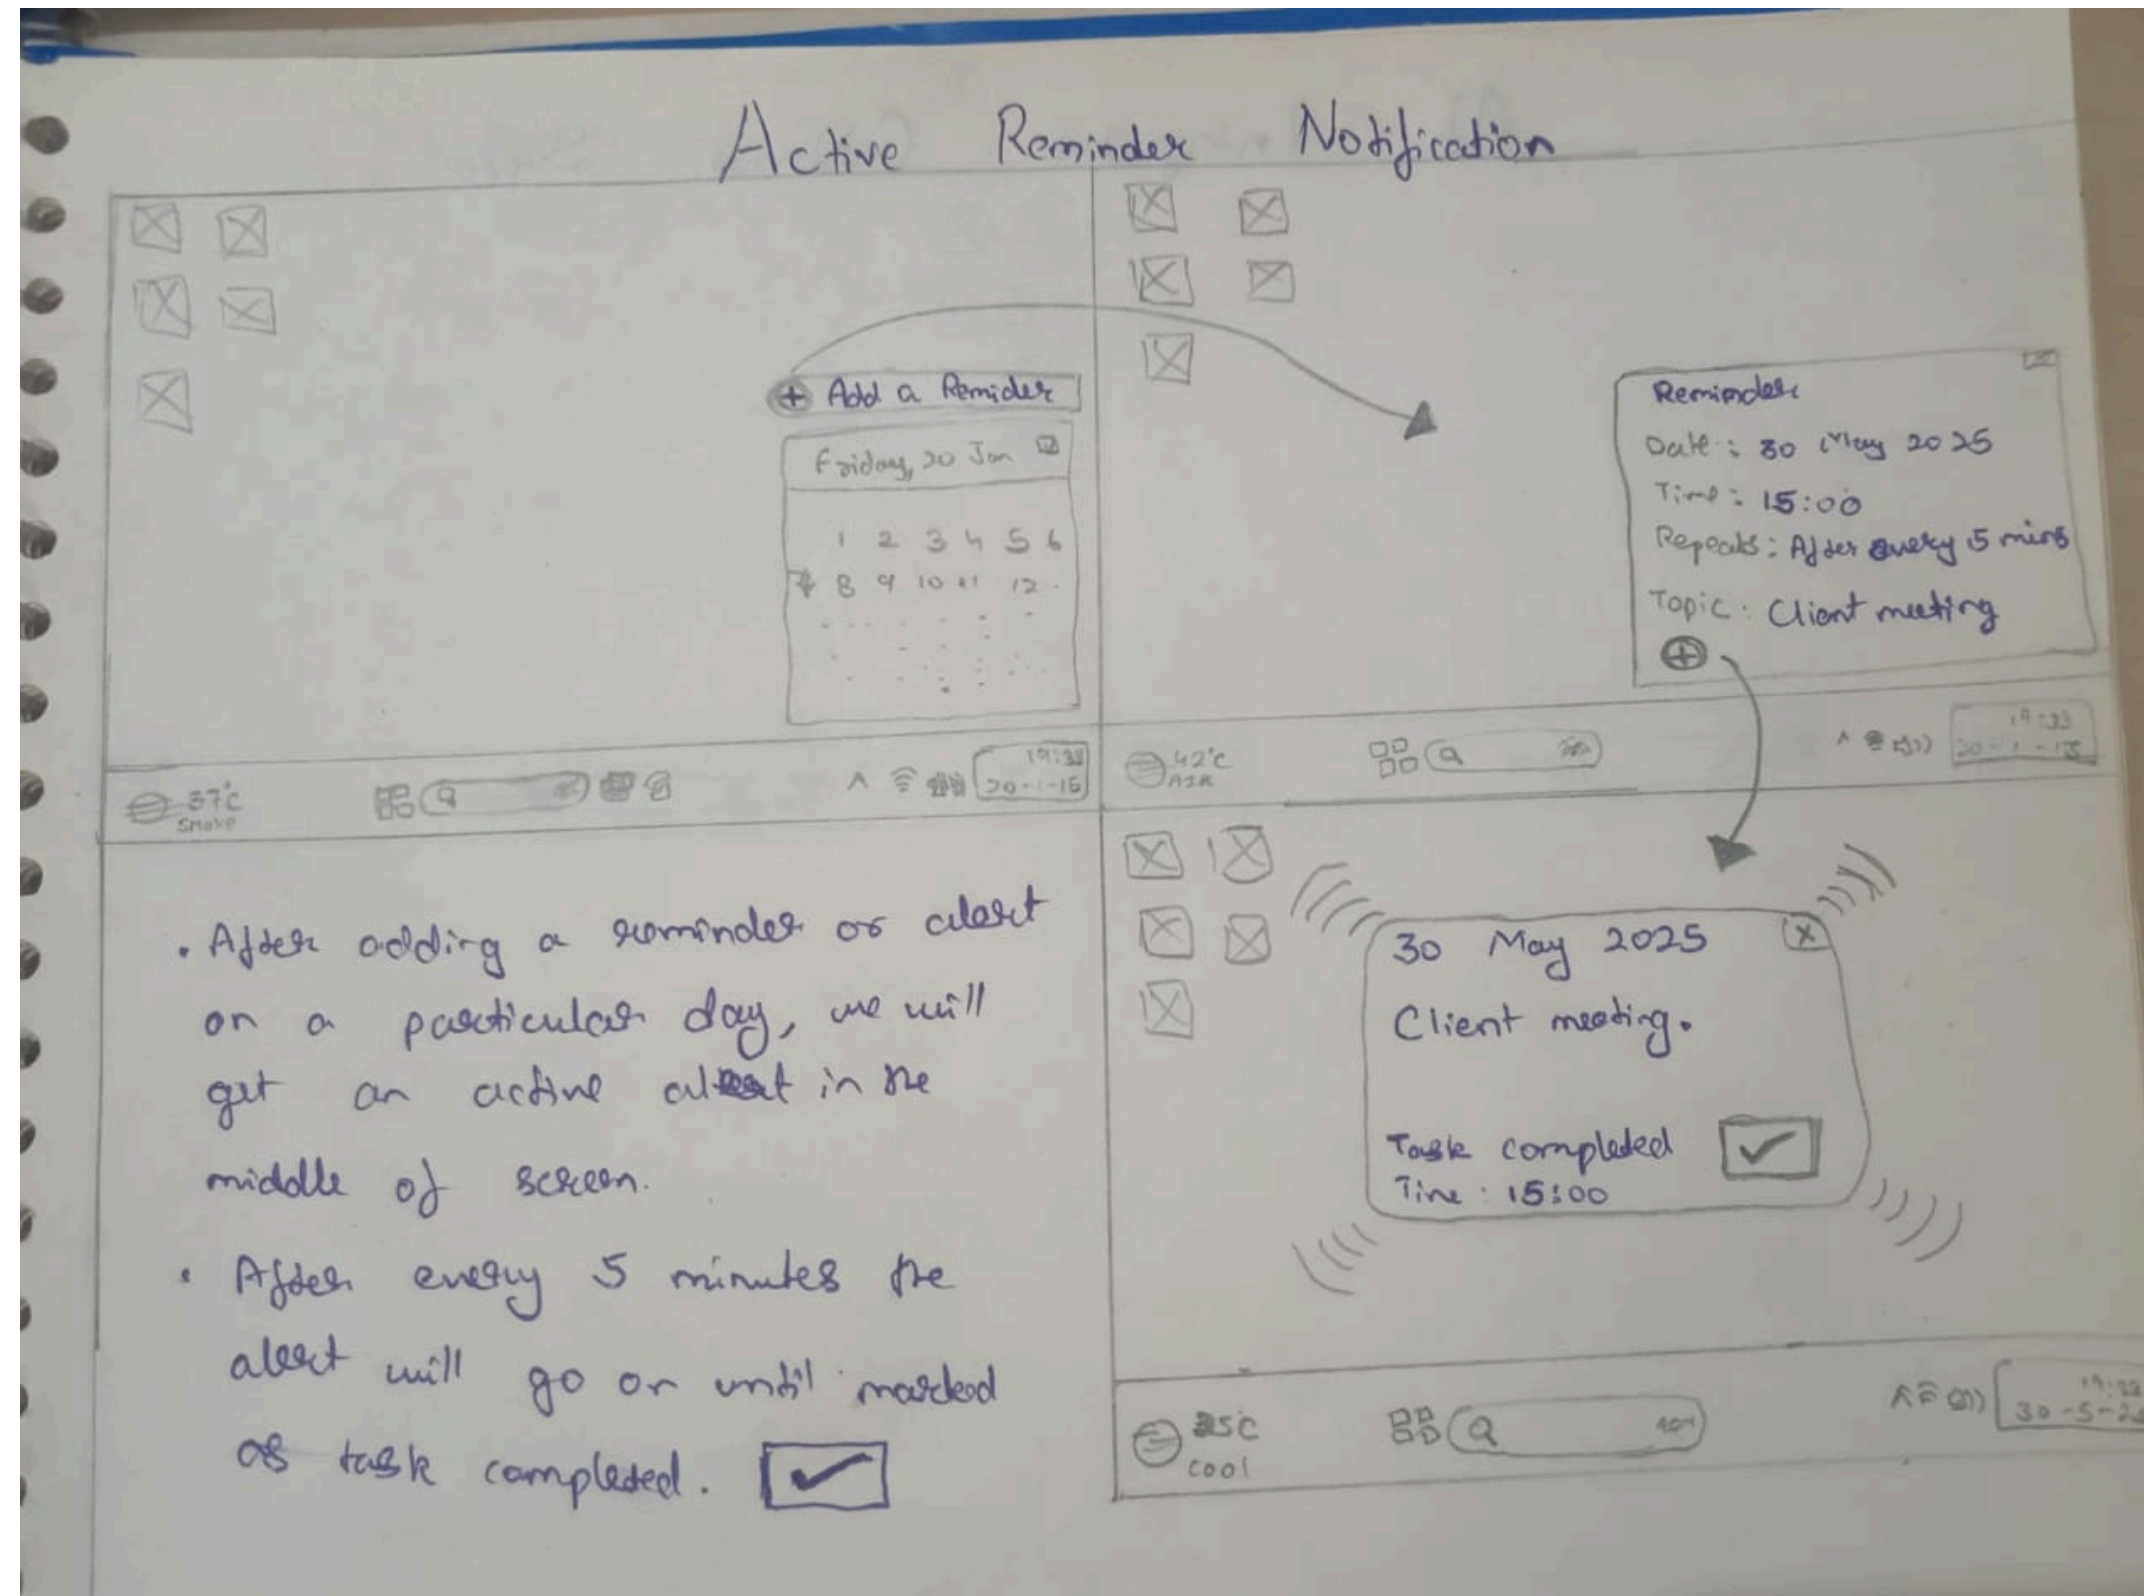 Active Reminder Notification
+ Add a Remider
Friday, 20 Jan
1 2 3 4 5 6
7 8 9 10 11 12
37°C
Smoke
19:33
20-1-15
Reminder
Date : 30 May 2025
Time : 15:00
Repeats : After every 5 mins
Topic : Client meeting
+
42°C
AIR
19:33
20-1-
• After adding a reminder or alert
on a particular day, we will
get an active alert in the
middle of screen.
• After every 5 minutes the
alert will go on until marked
as task completed.
30 May 2025 X
Client meeting.
Task completed
Time : 15:00
cool
30-5-